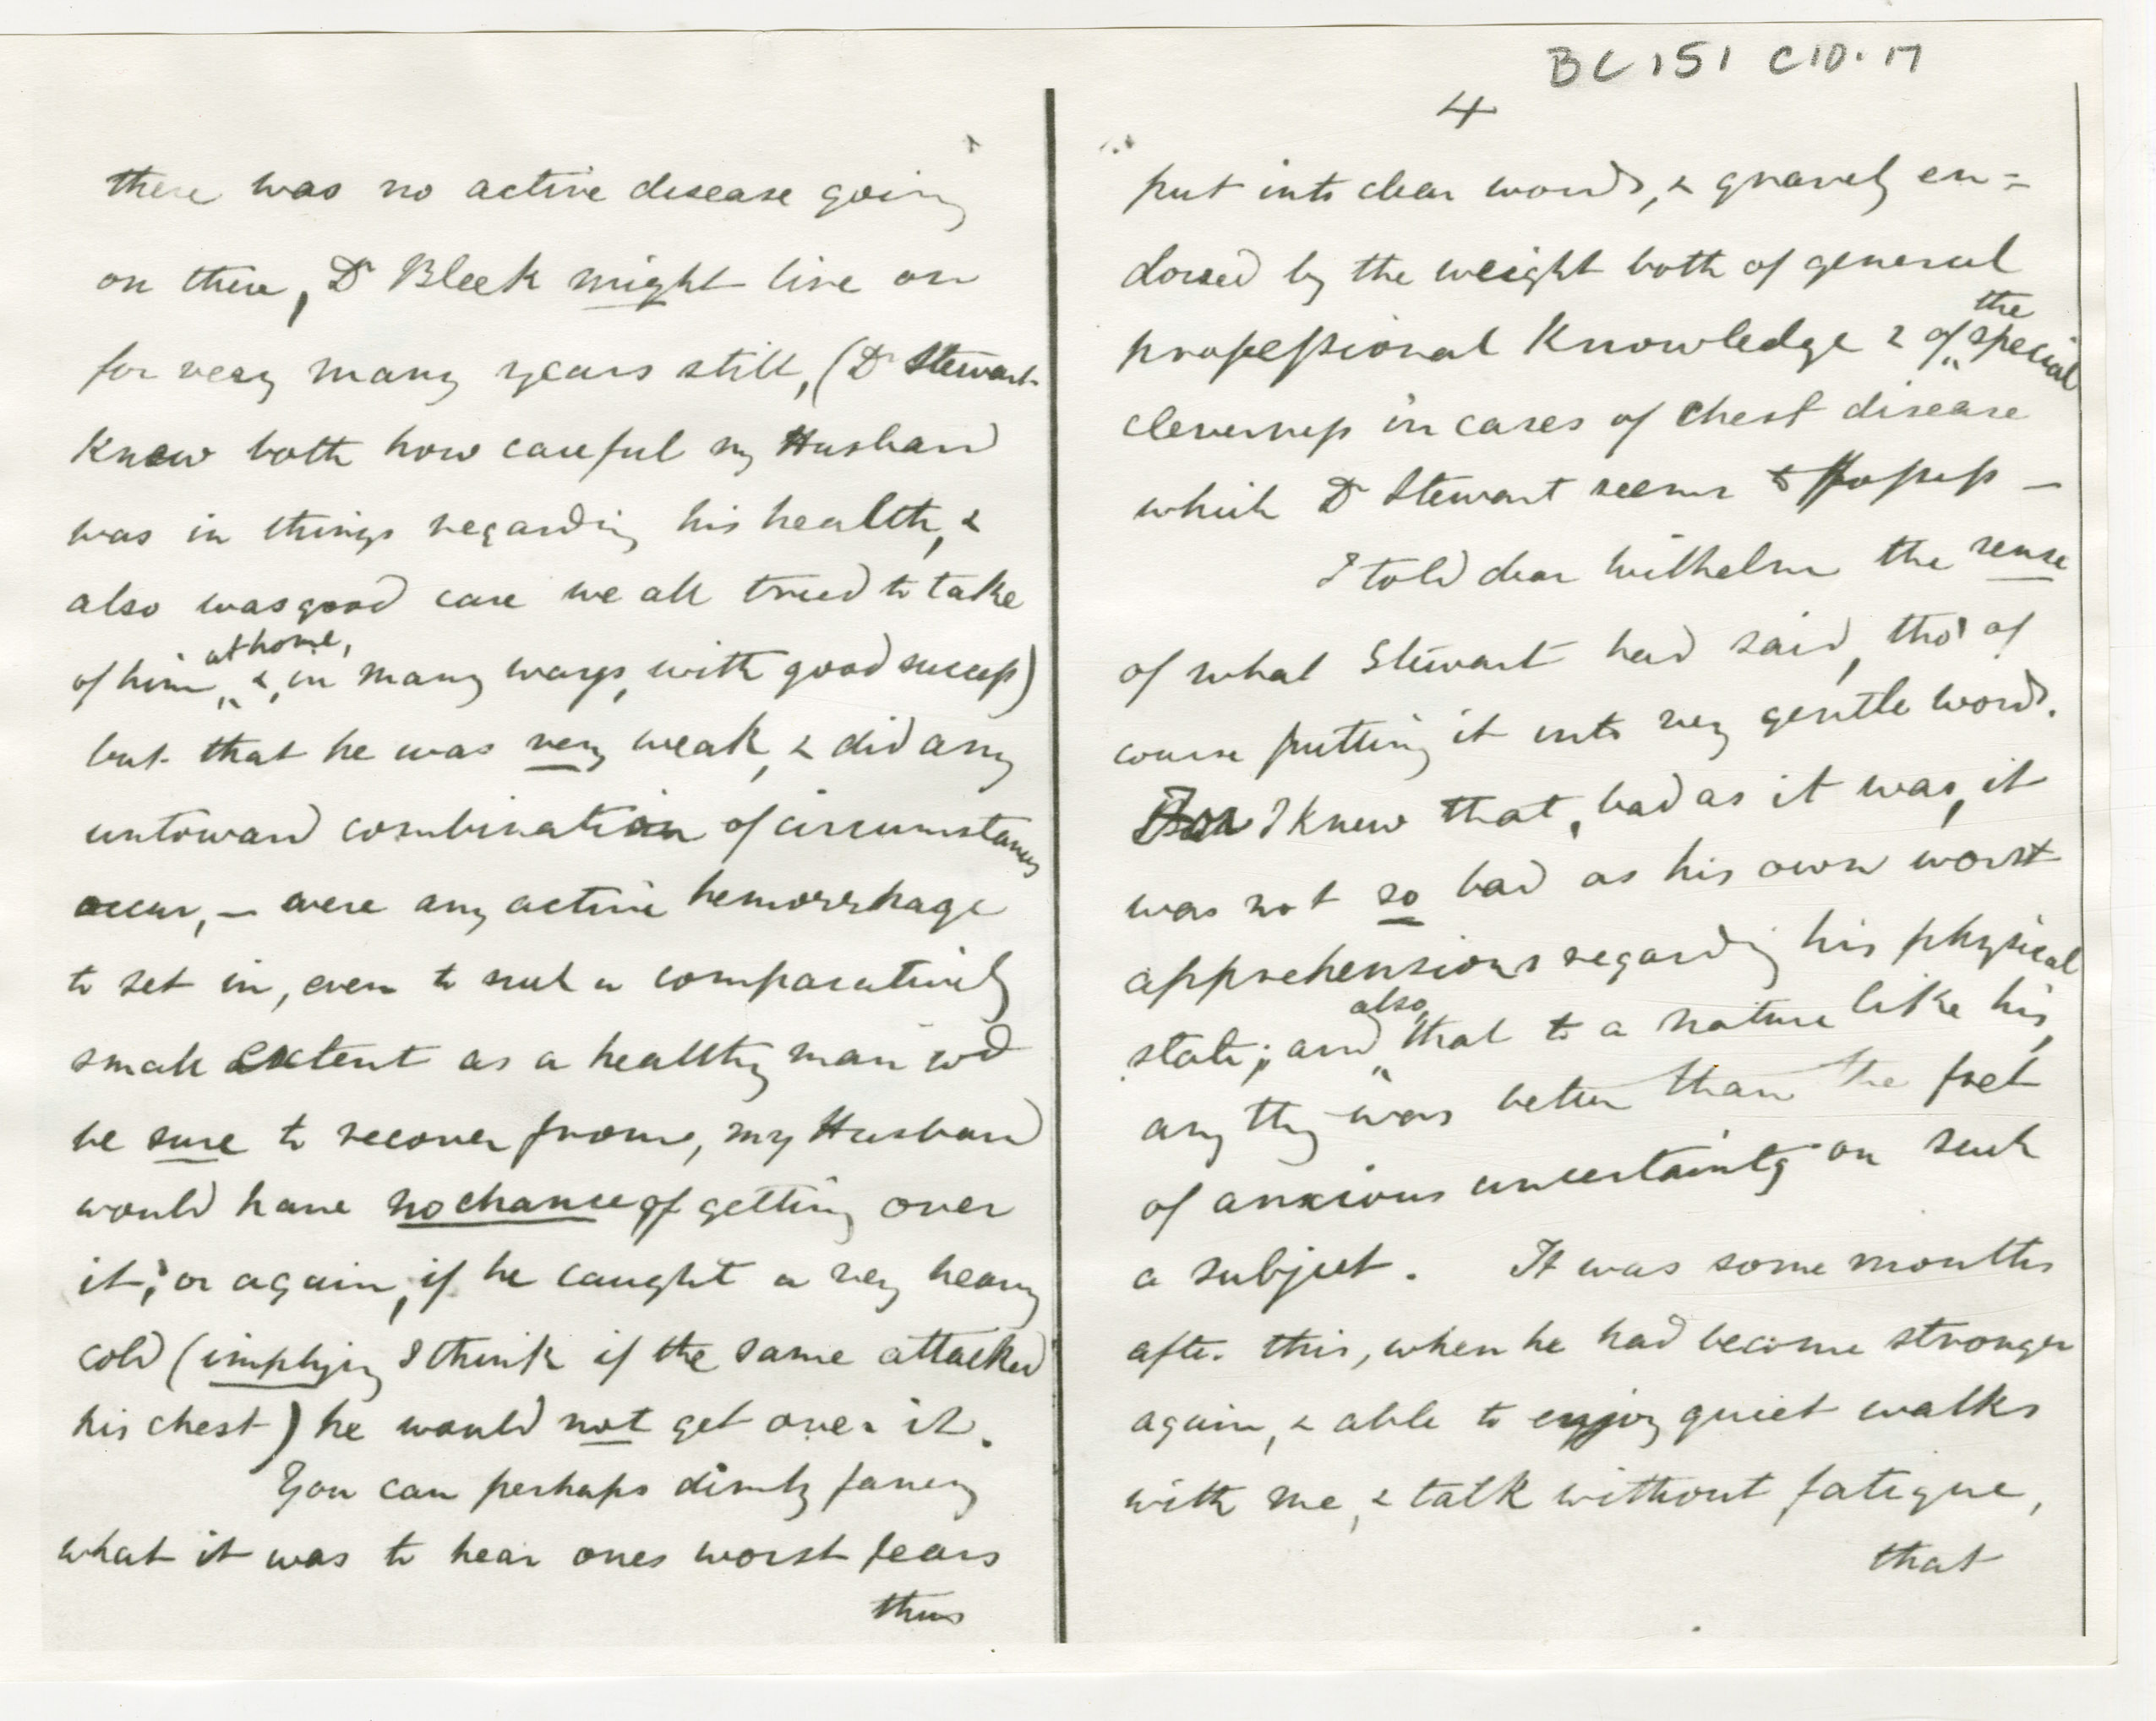 there was no active disease going
on there, Dr Bleek might live on
for very many years still, (Dr Stewart
knew both how careful my Husband
was in things regarding his health, &
also was good care we all tried to take
at home,
of him, &, in many ways, with good success)
but that he was very weak, & did any
untoward combination of circumstances
occur, – were any active hemorrhage
to set in, even to such a comparatively
small extent as a healthy man wd
be sure to recover from, my Husband
would have no chance of getting over
it; or again, if he caught a very heavy
cold (implying I think if the same attacked
his chest) he would not get over it.
You can perhaps dimly fancy
what it was to hear ones worst fears
thus
BC 151 C10.17
4
put into clear words, & gravely en=
dorsed by the weight both of general
the
professional knowledge & of special
cleverness in cases of chest disease
which Dr Stewart seems to possess –
I told dear Wilhelm the sense
of what Stewart had said, tho' of
course putting it into very gentle words.
For I knew that, bad as it was, it
was not so bad as his own worst
apprehensions regarding his physical
also,
state; and that to a nature like his,
any thg was better than the fret
of anxious uncertainty on such
a subject. It was some months
after this, when he had become stronger
again, & able to enjoy quiet walks
with me, & talk without fatigue,
that